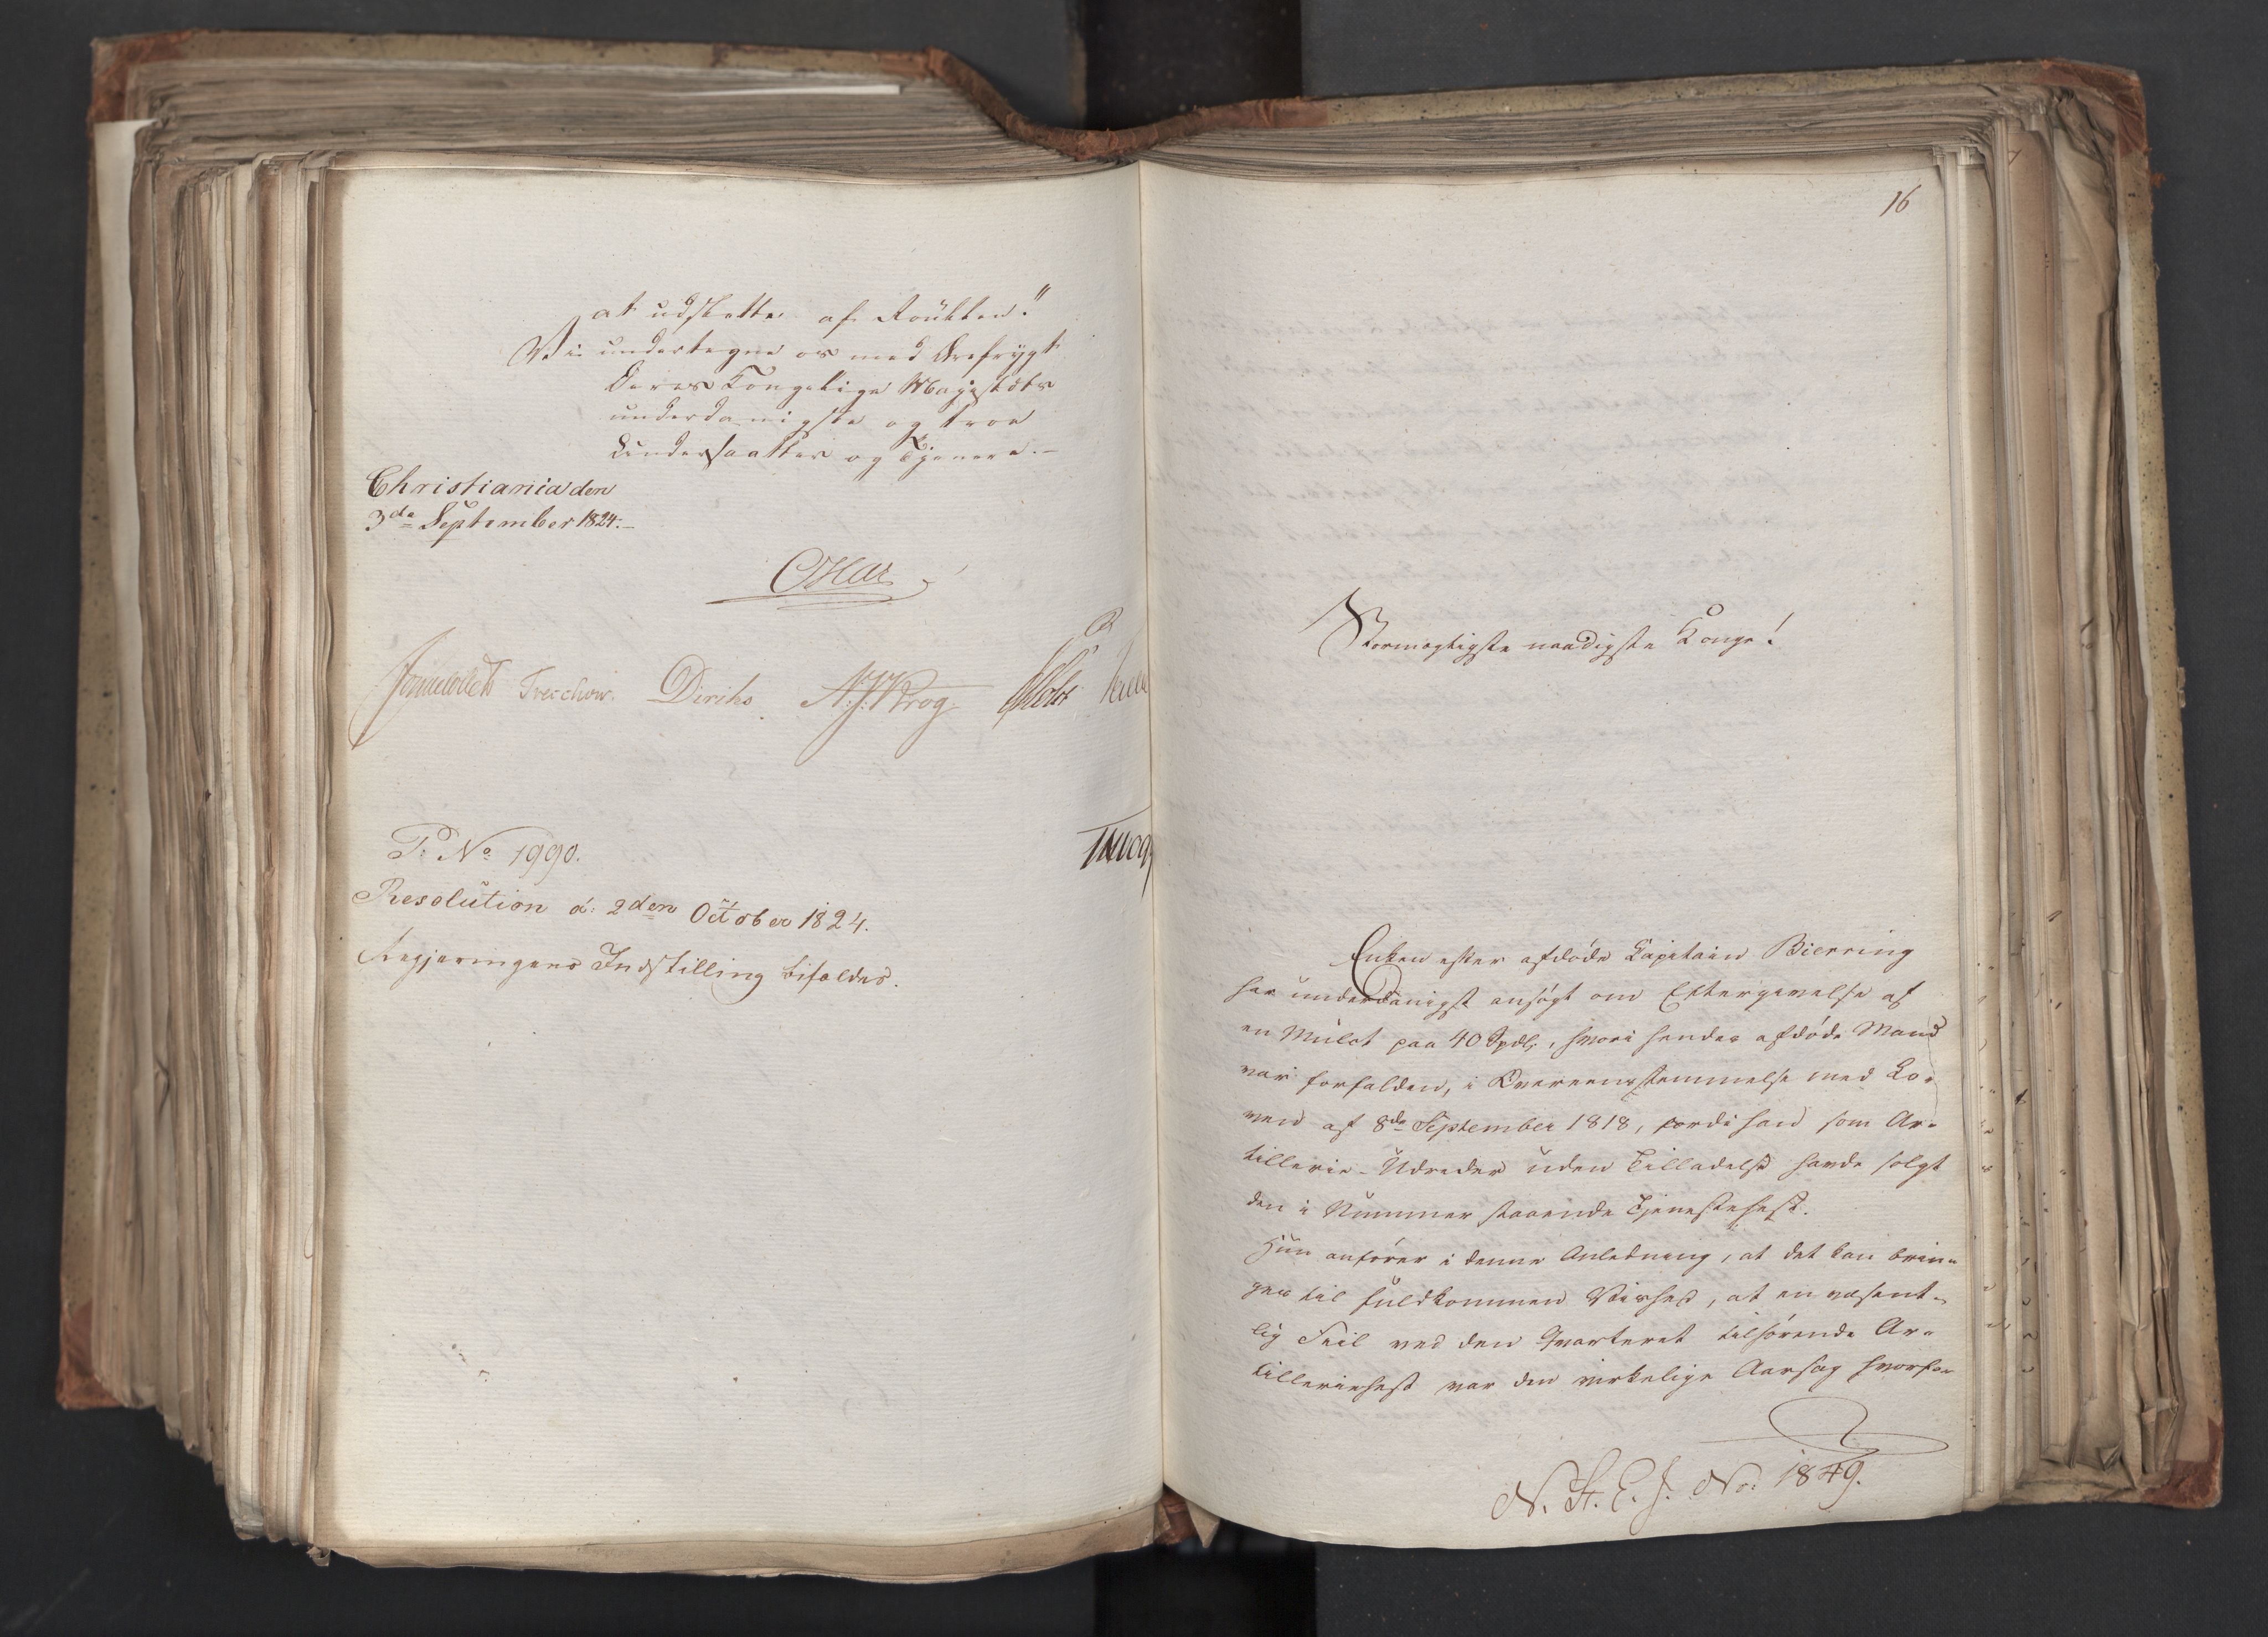 at udslette af Roullen."
Vi undertegne os med Ærefrygt
Deres Kongelige Majestæts
underdanigste og troe
Undersaatter og Tjenere.-
Christiania den
3de September 1824.-
Treschow. Diriks N.J. Krog
P: No 1990.
Resolution d: 2den October 1824.
Regjeringens Indstilling bifaldes.
16
Stormægtigste naadigste Konge!
Enken efter afdøde Kapitain Bierring
har underdanigst ansøgt om Eftergivelse af
en Mulct paa 40 Spdlr, hvori hendes afdøde Mand
var forfalden, i Overeensstemmelse med Lo-
ven af 8de September 1818, fordi han som Ar-
tillerie-Udreder uden Tilladelse havde solgt
den i Nummer staaende Tjenestehest.
Hun anfører i denne Anledning, at det kan brin-
ges til fuldkommen Vished, at en væsent-
lig Feil ved den Qvarteret tilhørende Ar-
tilleriehest var den virkelige Aarsag hvorfor
N. St. E. J. No: 1849.